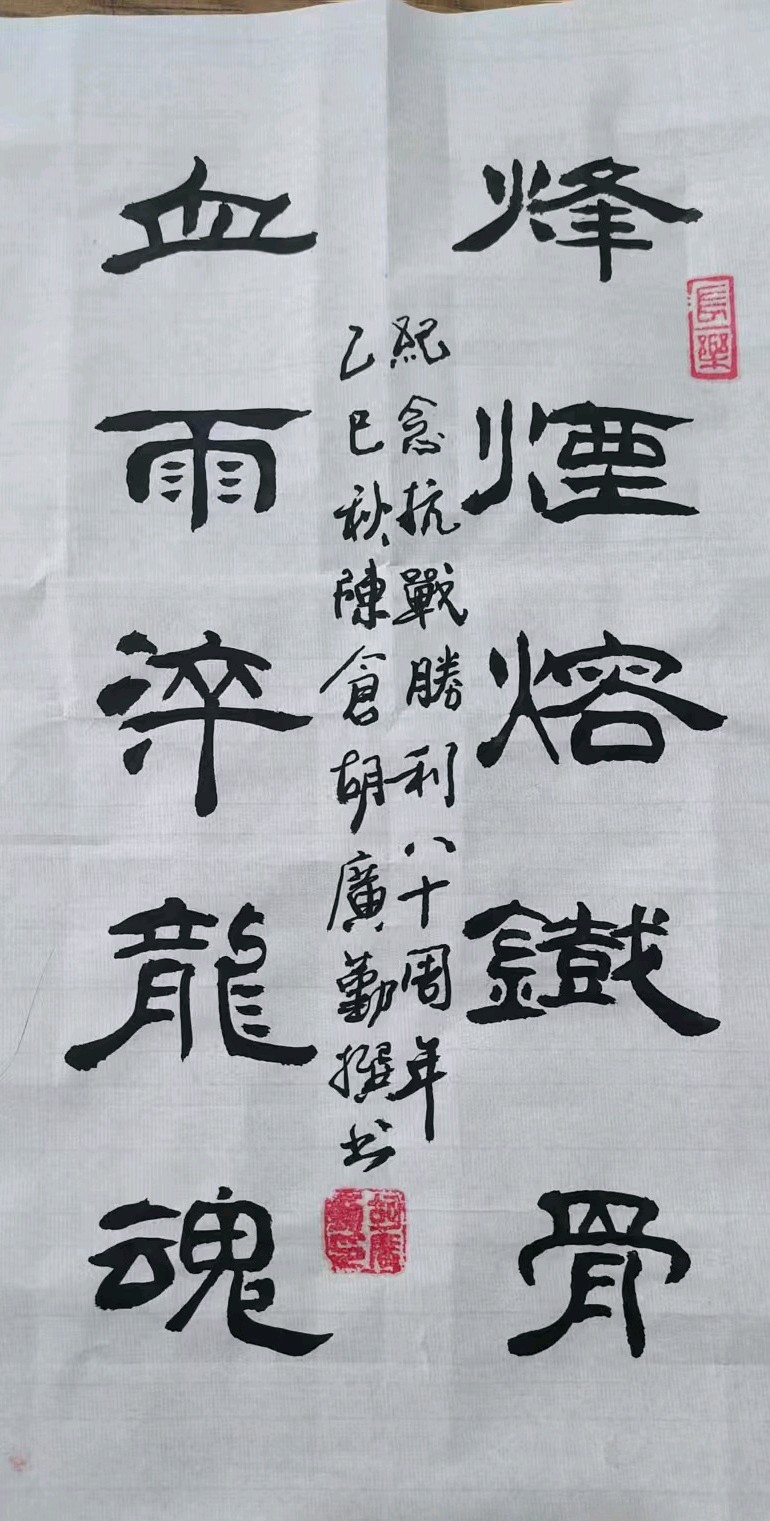 烽煙熔鐵骨
血雨淬龍魂
紀念抗戰勝利八十周年
乙巳秋陳倉胡廣勤撰书
長樂